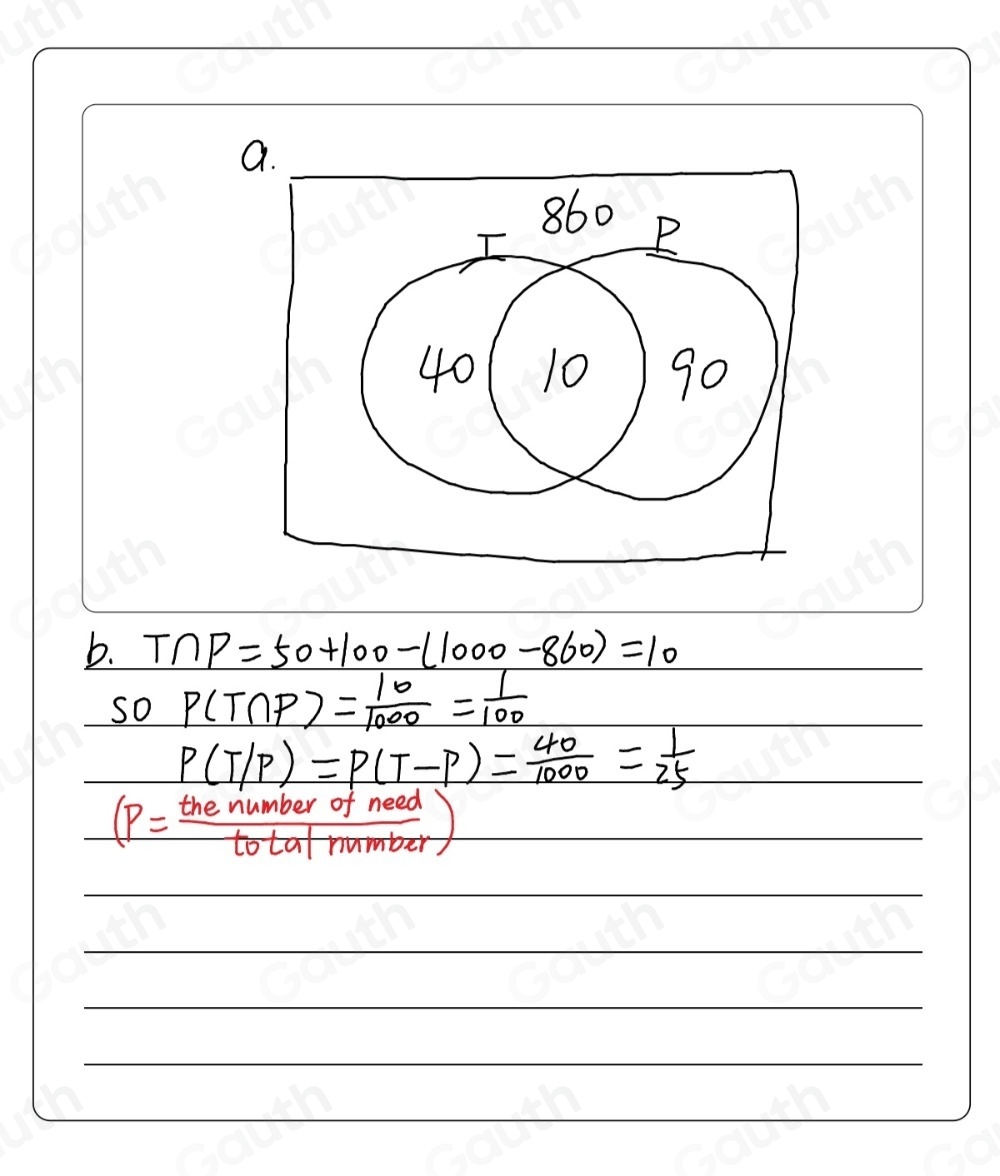 a.
860
T P
40 10 90
b. T∩P=50+100-(1000-860)=10
so P(T∩P)=10/1000=1/100
P(T/P)=P(T-P)=40/1000=1/25
(P=the number of need/total number)
Gauth